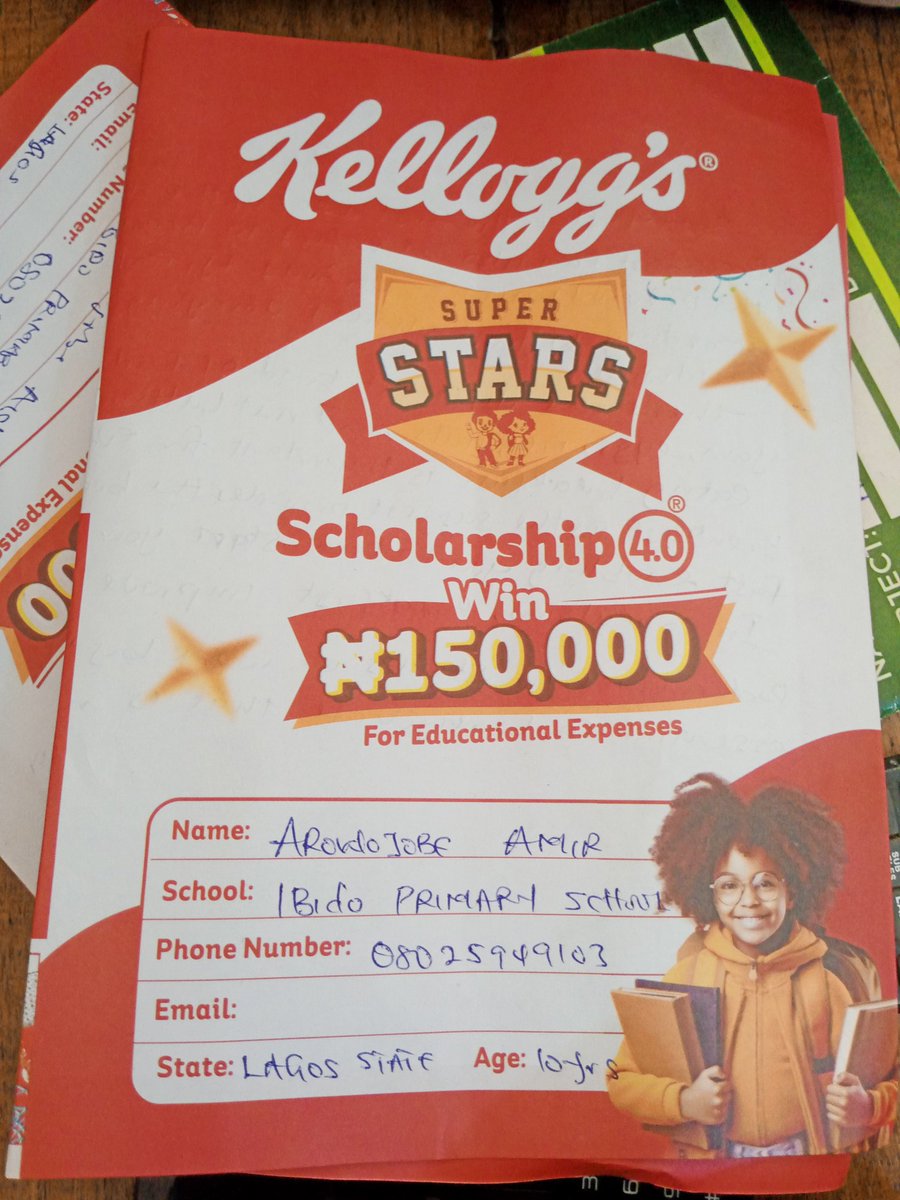 Kellogg's®
SUPER
STARS
Scholarship 4.0®
Win
₦150,000
For Educational Expenses
Name: AROWOJOBE AMIR
School: IBIDO PRIMARY SCHOOL
Phone Number: 08025949103
Email:
State: LAGOS STATE Age: 10yrs
State: LAGOS
Email:
Number:
PRIMAR
onal Expense
00
JECT:
NA